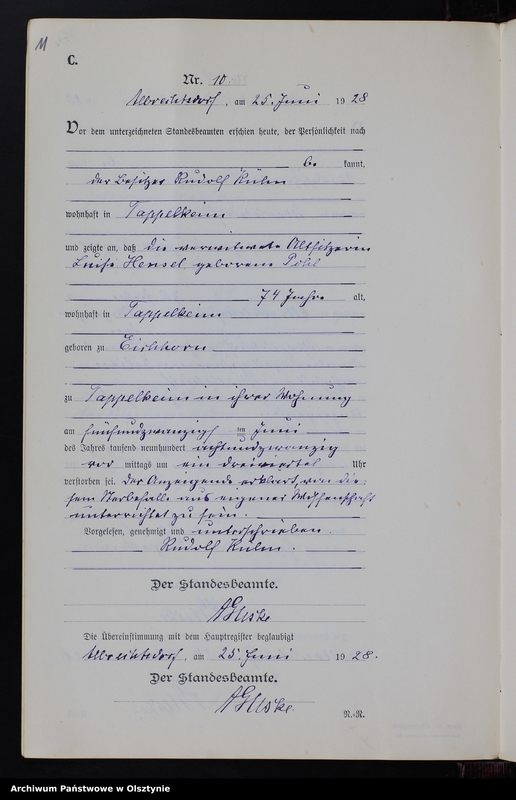 11
C.
Nr. 10.
Albrechtsdorf, am 25. Juni 1928
Vor dem unterzeichneten Standesbeamten erschien heute, der Persönlichkeit nach
be kannt,
der Besitzer Rudolf Kühn
wohnhaft in Tappelkeim
und zeigte an, daß die verwitwete Altsitzerin
Luise Hensel geborene Pohl
74 Jahre alt,
wohnhaft in Tappelkeim
geboren zu Eichhorn
zu Tappelkeim in ihrer Wohnung
am fünfundzwanzigsten Juni
des Jahres tausend neunhundert achtundzwanzig
vor mittags um ein dreiviertel Uhr
verstorben sei. Der Anzeigende erklärt, von die-
sem Sterbefalle aus eigener Wissenschaft
unterrichtet zu sein.
Vorgelesen, genehmigt und unterschrieben.
Rudolf Kühn.
Der Standesbeamte.
Die Übereinstimmung mit dem Hauptregister beglaubigt
Albrechtsdorf, am 25. Juni 1928.
Der Standesbeamte.
N.-R.
Archiwum Państwowe w Olsztynie